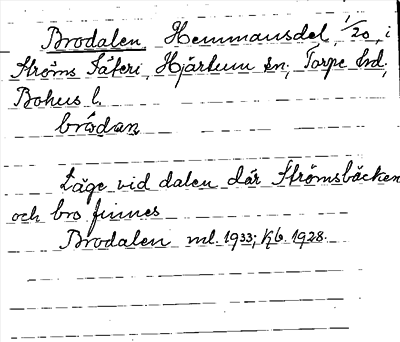 Brodalen, Hemmansdel, 1/20, i
Ströms Säteri, Hjärtum sn; Torpe hd;
Bohus l.
brōdan
Läge vid dalen där Strömsbäcken
och bro finnes
Brodalen ml. 1933; Kb. 1928.